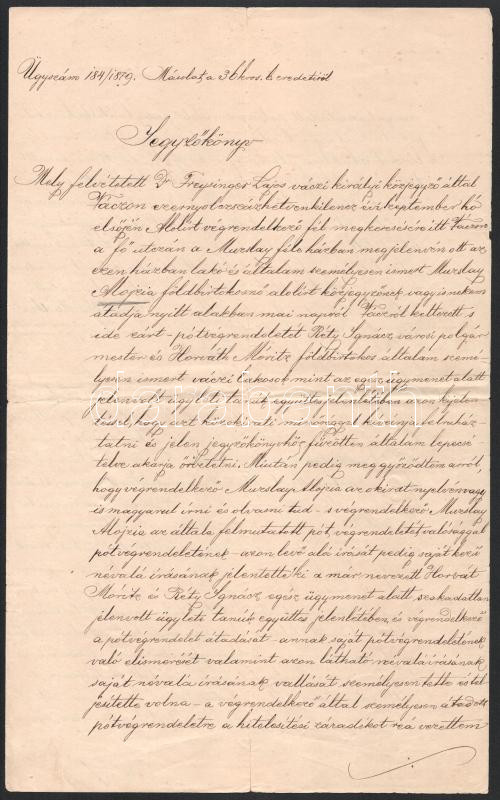 Ügyszám 184/1879. Másolat a 36 kros. b. eredetiről
Jegyzőkönyv
Mely felvétetett Dr Freysinger Lajos váczi királyi közjegyző által
Váczon ezernyolczszázhetvenkilencz évi september hó
elsőjén Alólirt végrendelkező fél megkeresésére itt Váczon
a fő utczán a Muzslay féle házban megjelenvén ott az
ezen házban lakó és általam személyesen ismert Muzslay
Alojzia földbirtokosnő alólirt közjegyzőnek vagyis nekem
átadja nyitt alakban mai napról Váczról keltezett s
ide zárt pótvégrendeletet Réty Ignácz városi polgár
mester és Horváth Móritz földbirtokos általam szemé-
lyesen ismert váczi lakosok mint az egész ügymenet alatt
jelenvolt ügyleti tanúk együttes jelenlétében azon kijelen
téssel, hogy azt közokirati minőséggel kivánja felruház-
tatni és jelen jegyzőkönyvhöz fűzötten általam lepecsé-
telve akarja őriztetni. Miután pedig meggyőződtem arról,
hogy végrendelkező Muzslay Alojzia az okirat nyelvén vagy
is magyarul irni és olvasni tud - s végrendelkező Muzslay
Alojzia az általa felmutatott pót végrendeletet valósággal
pótvégrendeletének azon levő alá irását pedig saját kezű
névalá irásának jelentette ki a már nevezett Horvát
Móritz és Réty Ignácz egész ügymenet alatt szakadatlan
jelenvolt ügyleti tanúk együttes jelenlétében, és végrendelkező
a pótvégrendelet átadását - annak saját pótvégrendeletének
való elismerését valamint azon látható névaláirásának
saját névalá irásának vallását személyesen tette és tel
jesitette volna - a végrendelkező által személyesen átadott
pótvégrendeletre a hitelesitési záradékot reá vezettem